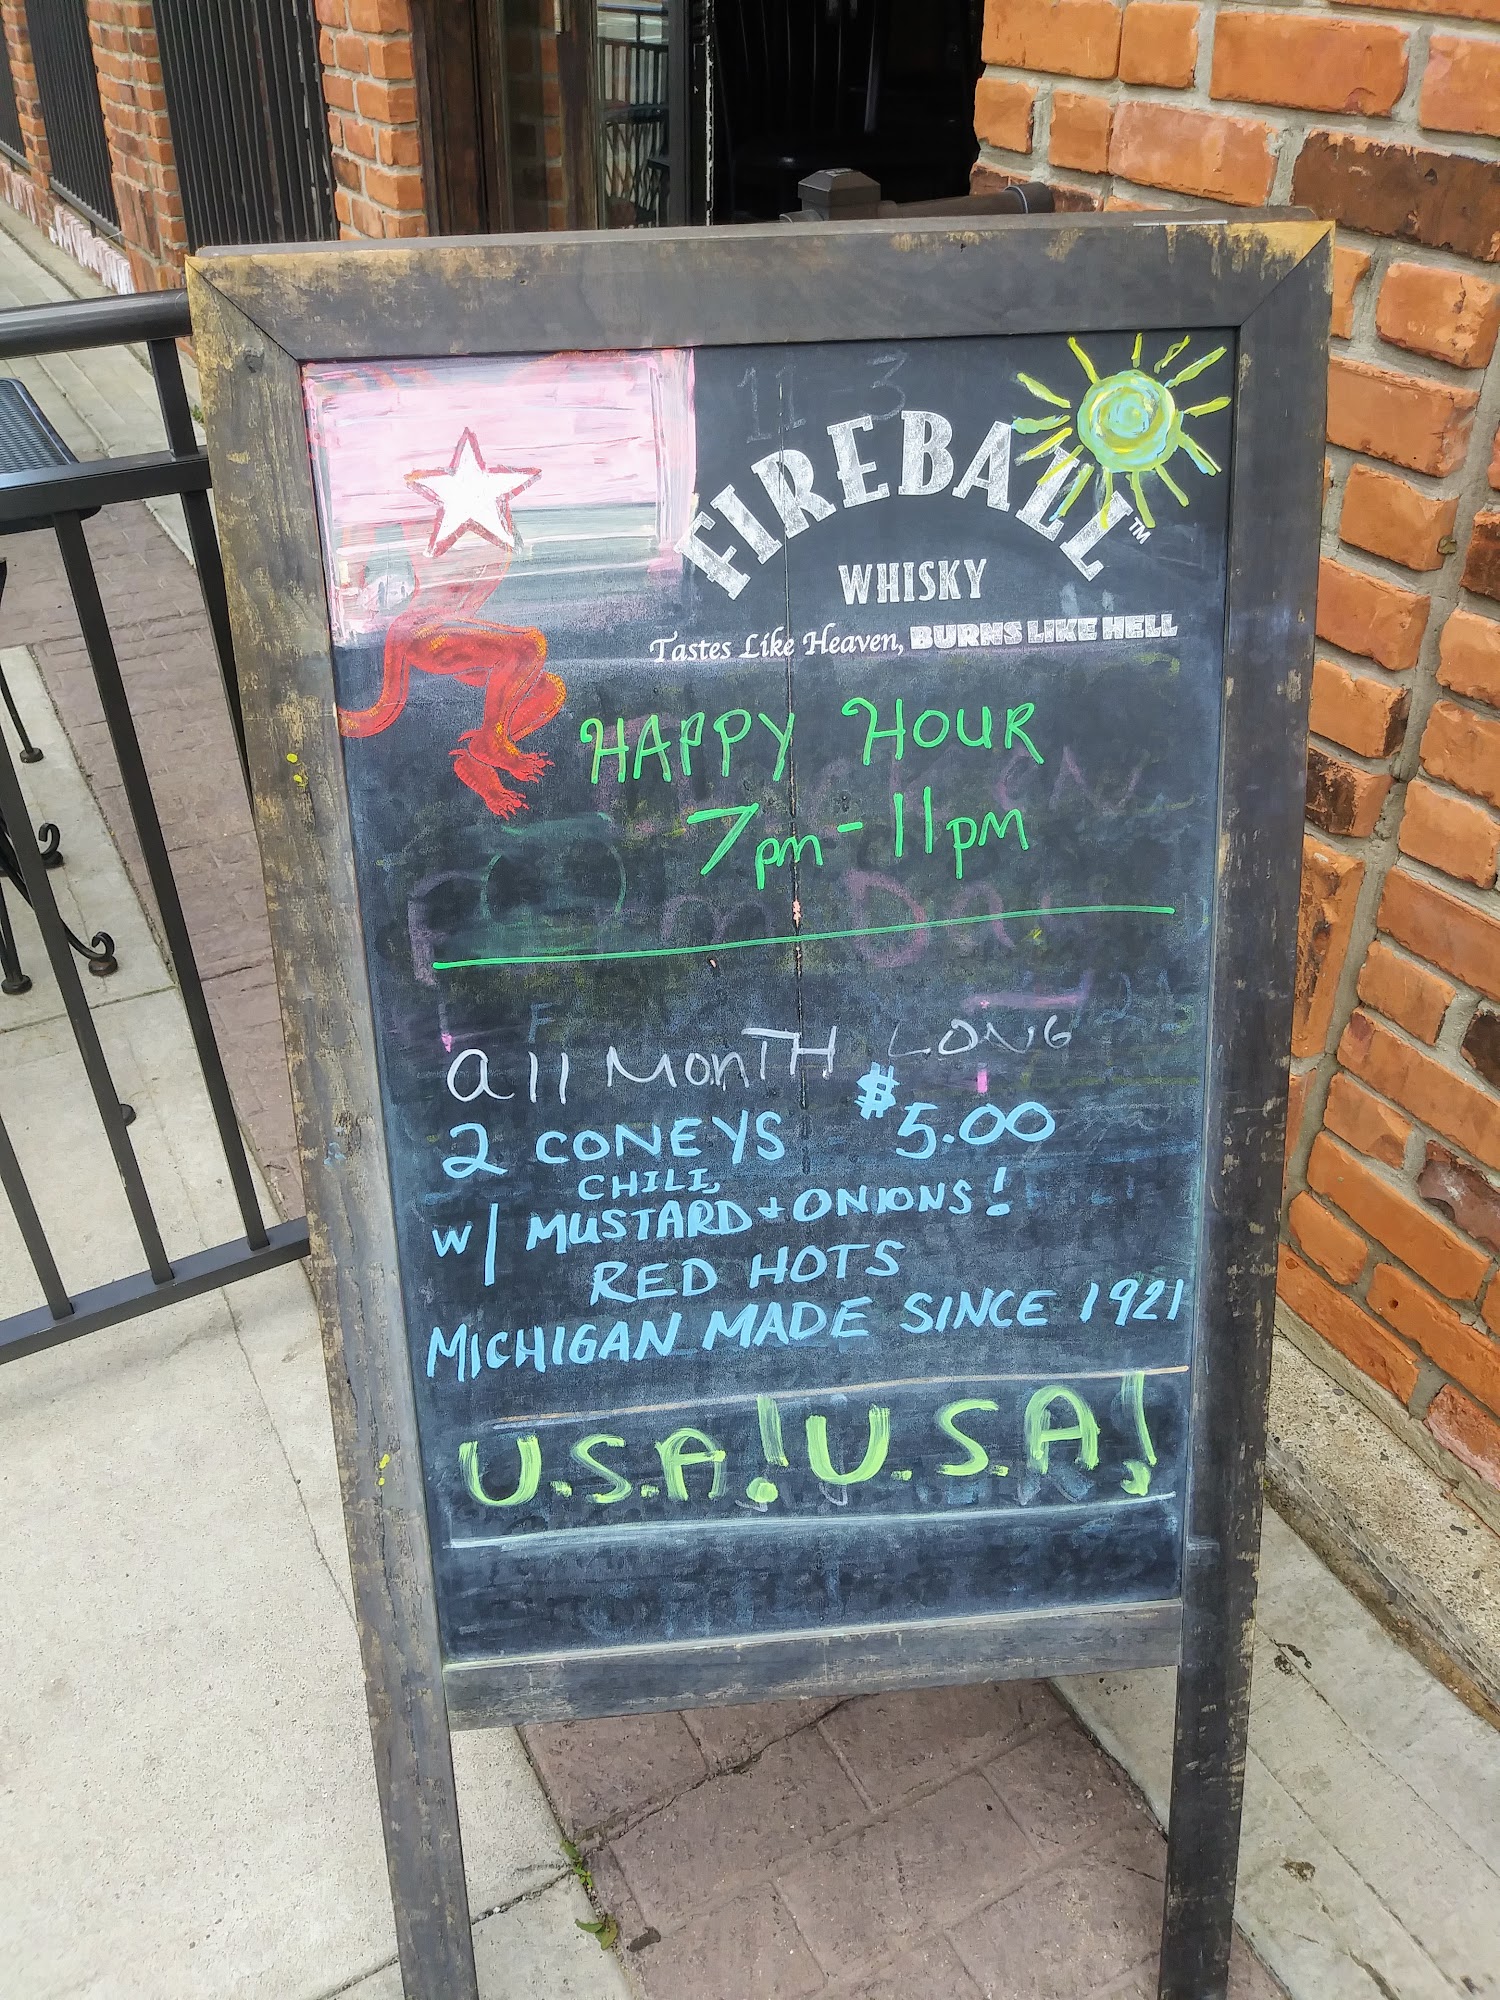 11-3
FIREBALL™
WHISKY
Tastes Like Heaven, BURNS LIKE HELL
HAPPY HOUR
7pm-11pm
all MonTH LONG
2 CONEYS $5.00
CHILI,
w/ MUSTARD + ONIONS!
RED HOTS
MICHIGAN MADE SINCE 1921
U.S.A! U.S.A!